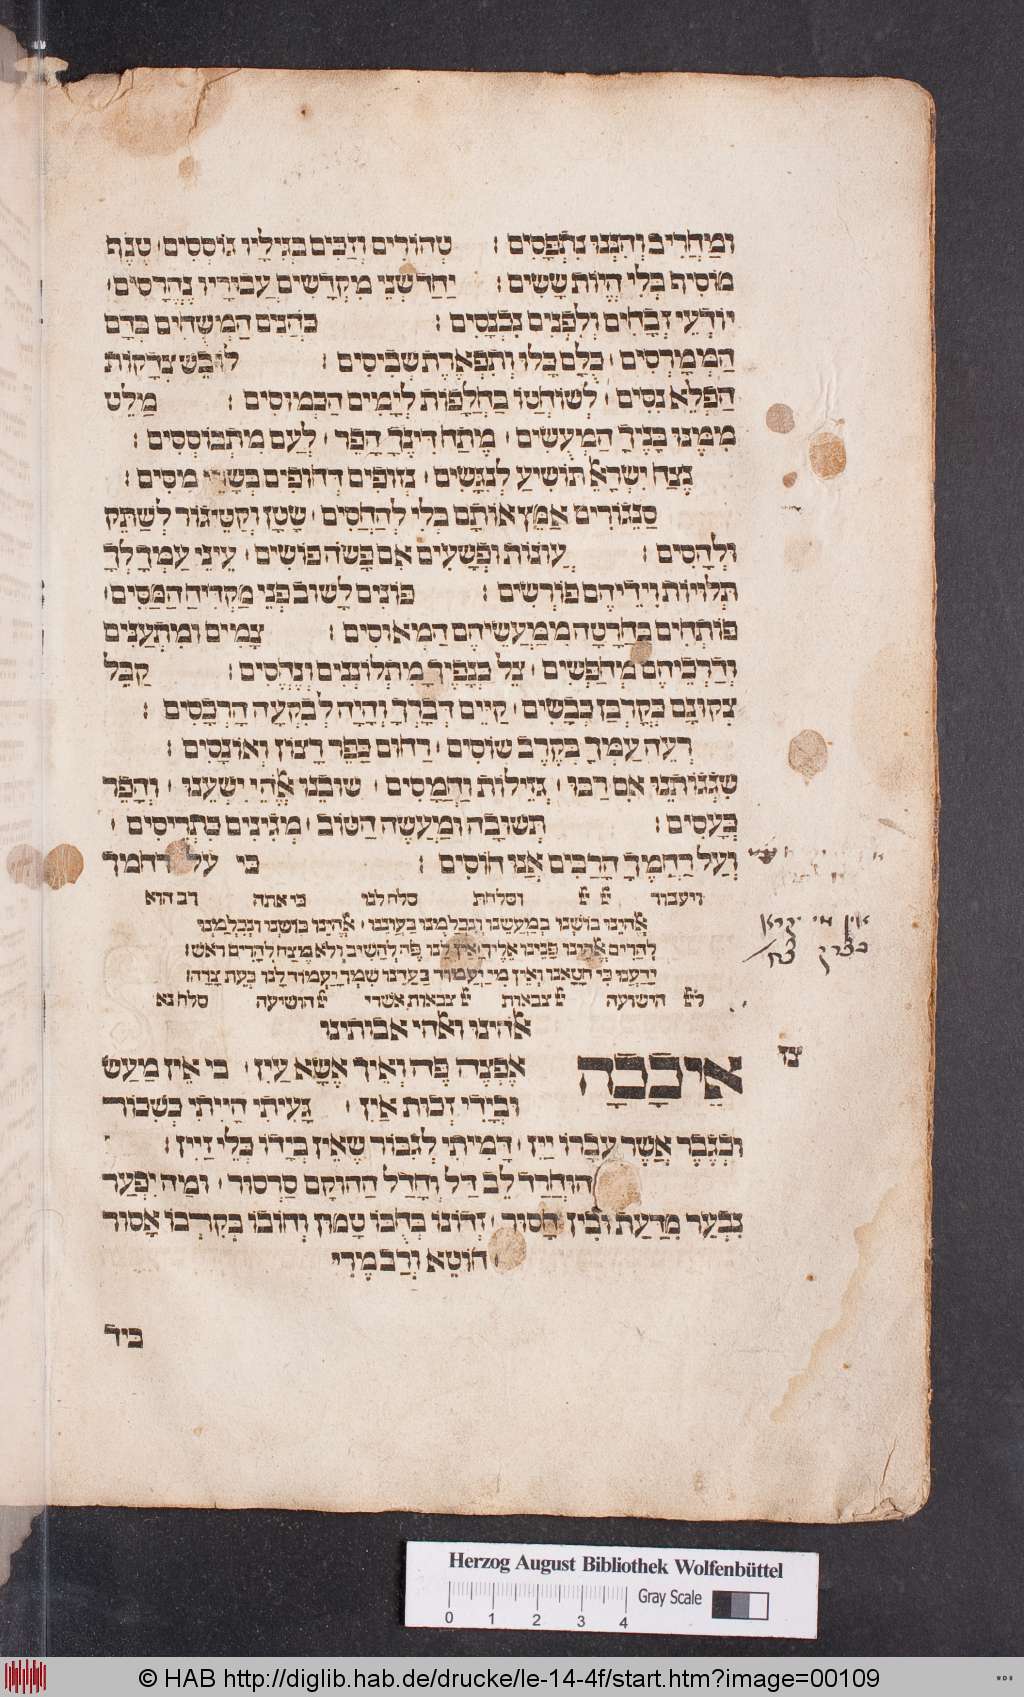 ומחריב והננו נתפסים : טהורים וזבים בגיליו גוססים טנף
מוסיף בלי היות ששים : יחד שני מקדשים עבודיו נהרסים
יודעי זבחים ולפנים נכנסים : כהנים המשהים בדם
הממרסים כלם כלו ותפארת שביסים : לובש צדקות
הפלא נסים לשוחטו בחלפות לימים הכמוסים : מלט
ממנו בניך המעשים מתח דינך הפר לעם מתבוססים :
נצח ישראל תושיע לנגשים נזופים דחופים בשרי מסים :
סנגורים אמץ אותם בלי להחסים שטן וקטיגור לשתק
ולהסים : עונות ופשעים אם פשה פושים עיני עמך לך
תלויות וידיהם פורשים : פונים לשוב פני מקדיח המסים
פותחים בחרטה ממעשיהם המאוסים : צמים ומתענים
ודרכיהם מחפשים צל כנפיך מתלוננים ונחסים : קבל
צקונם כקרבן כבשים קיים דברך והיה לבקעה הרכסים :
רעה עמך בקרב שוסים רחום ככפר רצון ואונסים :
שגגותנו אם רבו גזילות וחמסים שובנו אלהי ישענו והפר
כעסים : תשובה ומעשה הטוב מגינים כתריסים
ועל רחמך הרבים אנו חוסים : כי על רחמך
ויעבור וסלחת סלח לנו כי אתה רב הוא
אלהינו בושנו במעשנו ונכלמנו בעוננו אלהינו בושנו ונכלמנו
להרים אלהינו פנינו אליך אין לנו פה להשיב ולא מצח להרים ראש :
ידענו כי חטאנו ואין מי יעמוד בעדנו שמך יעמוד לנו בעת צרה :
הישועה צבאות צבאות אשרי הושיעה סלח נא
אלהינו ואלהי אבותינו
צד
איככה אפצה פה ואיך אשא עין כי אין מעש
ובידי זכות אין געיתי הייתי כשכור
וכגבר אשר עברו יין דמיתי לגבור שאין בידו כלי זיין :
הוחרד לב דל וחדל ההוקם סרסור ומה יפער
נבער מדעת ובין חסור זדונו בחבו טמון וחובו בקרבו אסור
חוטא ורב מדי
ביד
אין מי יקרא
Herzog August Bibliothek Wolfenbüttel
0 1 2 3 4 Gray Scale
© HAB http://diglib.hab.de/drucke/le-14-4f/start.htm?image=00109